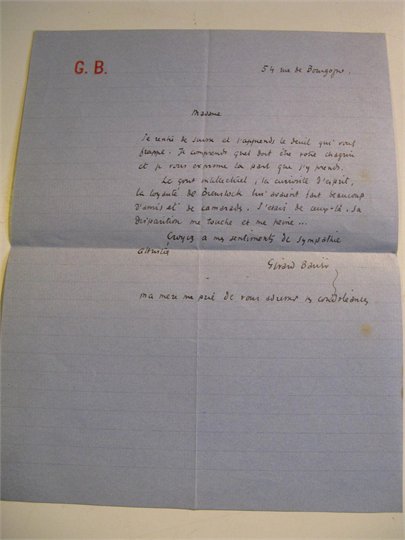 G. B.
54 rue de Bourgogne.
Madame
Je rentre de Suisse et j'apprends le deuil qui vous
frappe. Je comprends quel doit être votre chagrin
et je vous exprime la part que j'y prends.
Le gout intellectuel, la curiosité d'esprit,
la loyauté de Bienstock lui avaient fait beaucoup
d'amis et de camarades. J'étais de ceux-là. Sa
disparition me touche et me peine...
Croyez à mes sentiments de sympathie
attristée
Gérard Bauër
ma mère me prie de vous adresser ses condoléances